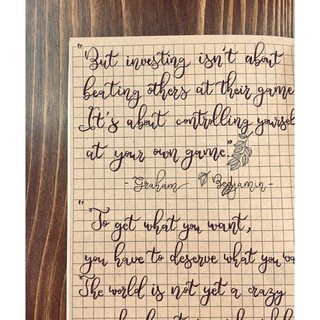 "But investing isn't about
beating others at their game
It's about controlling yourself
at your own game."
- Graham Benjamin -
"To get what you want,
you have to deserve what you wa
The world is not yet a crazy